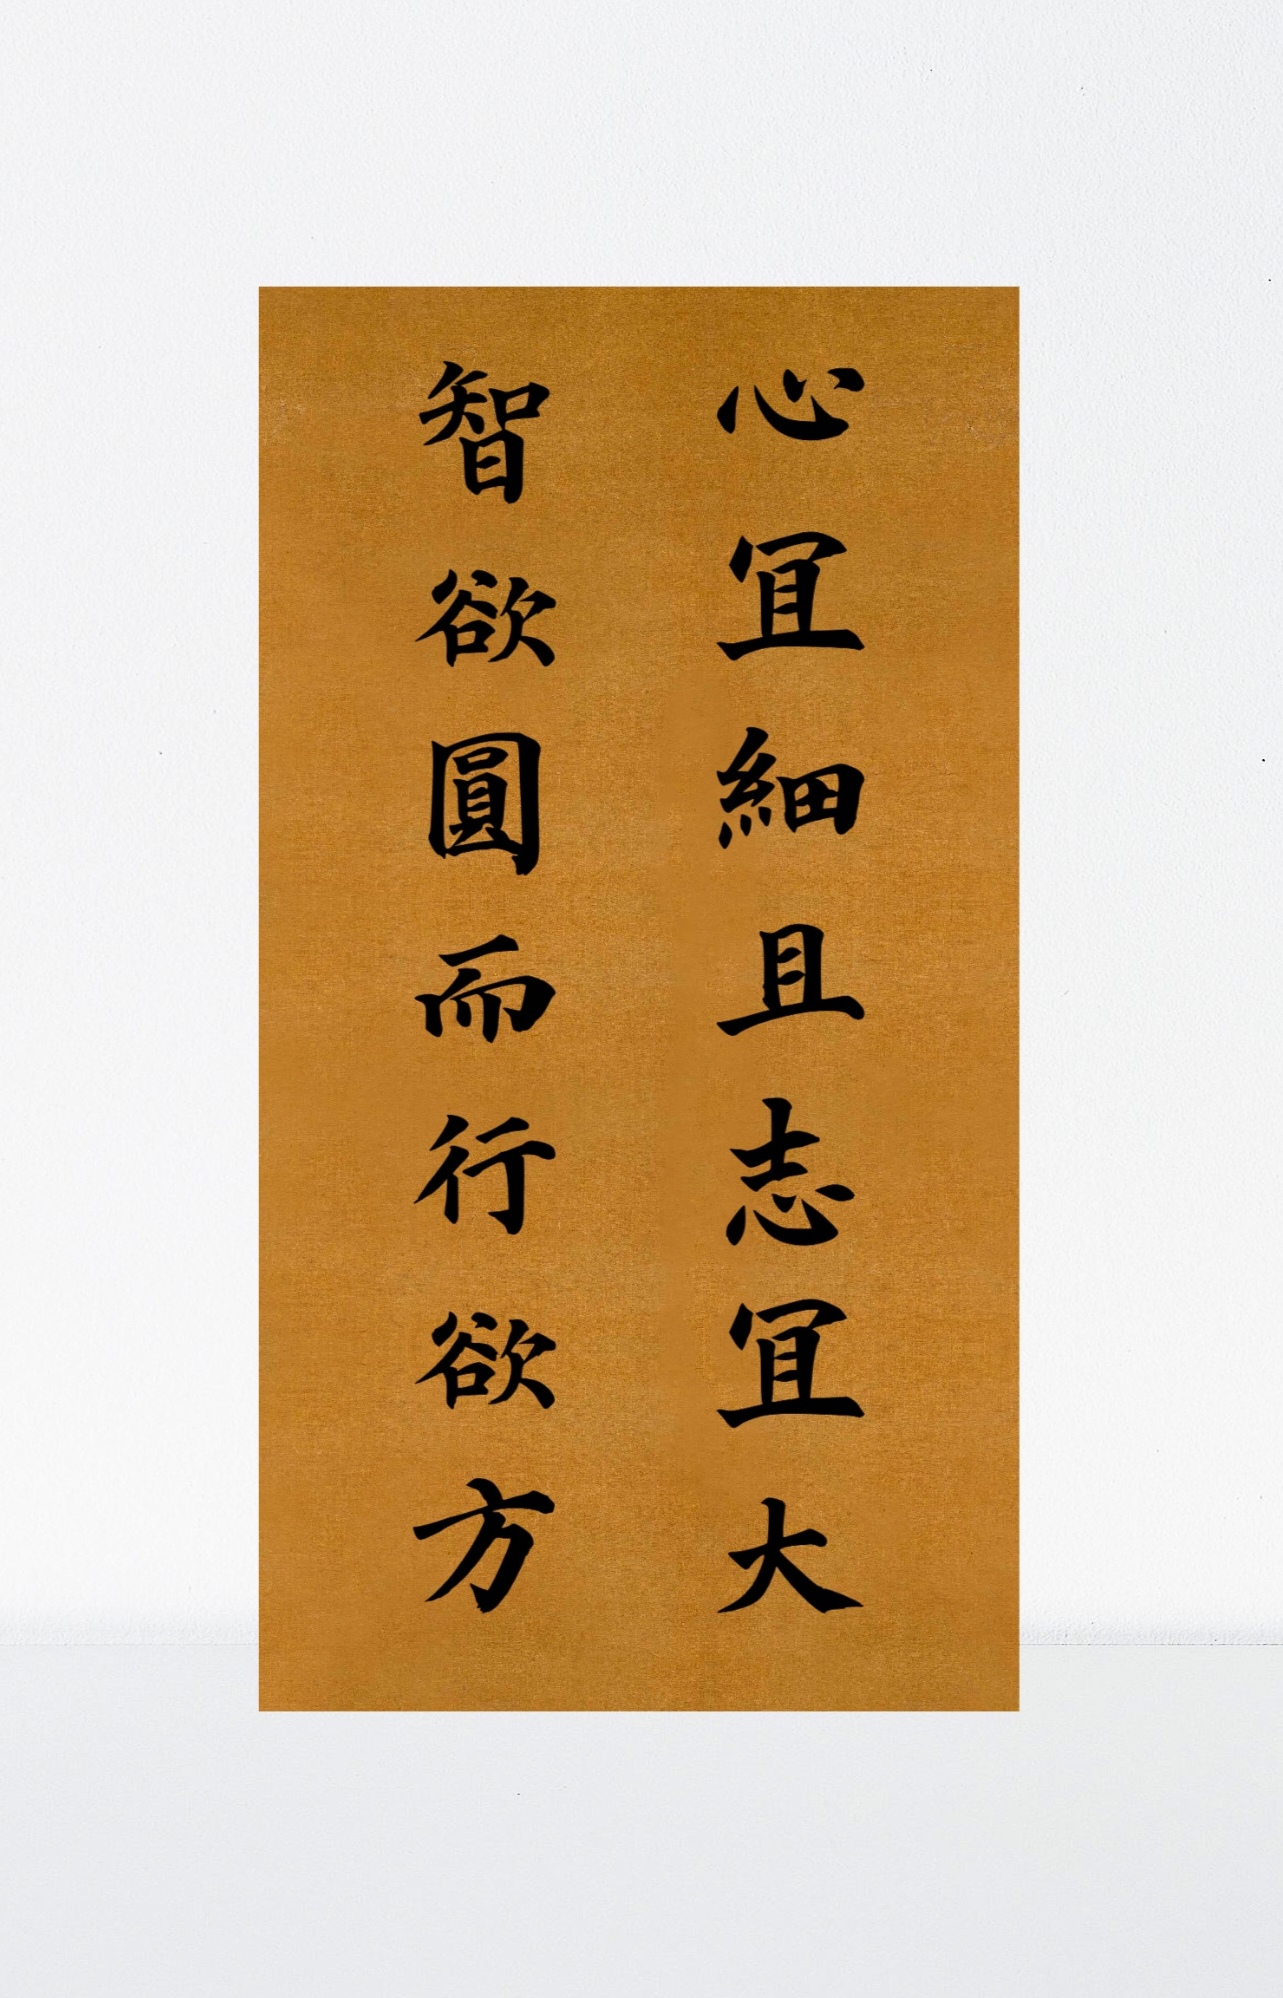 心宜細且志宜大
智欲圓而行欲方